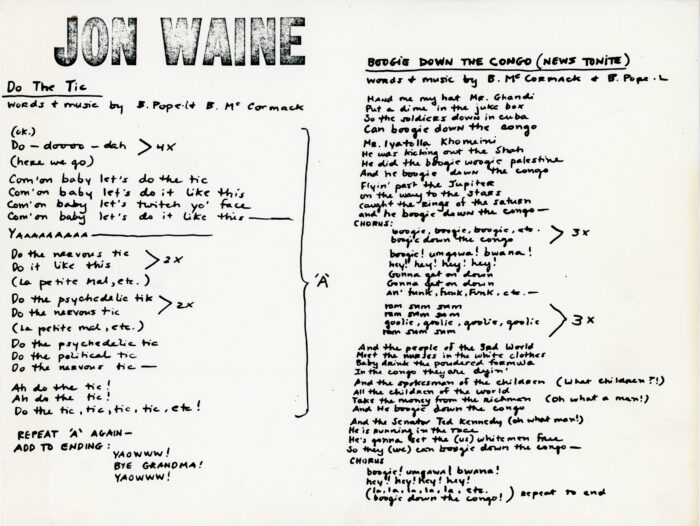 JON WAINE
Do The Tic
words + music by B. Pope.L + B. McCormack
(ok.)
Do - doooo - dah > 4x
(here we go)
Com'on baby let's do the tic
Com'on baby let's do it like this
Com'on baby let's twitch yo' face
Com'on baby let's do it like this —
YAAAAAAAAA —
Do the nervous tic
Do it like this > 2x
(La petite mal, etc.)
Do the psychedelic tik
Do the nervous tic > 2x
(La petite mal, etc.)
Do the psychedelic tic
Do the political tic
Do the nervous tic —
Ah do the tic!
Ah do the tic!
Do the tic, tic, tic, tic, etc!
'A'
REPEAT 'A' AGAIN —
ADD TO ENDING:
YAOWWW!
BYE GRANDMA!
YAOWWW!
BOOGIE DOWN THE CONGO (NEWS TONITE)
words + music by B. McCormack + B. Pope.L
Hand me my hat Mr. Ghandi
Put a dime in the juke box
So the soldiers down in cuba
Can boogie down the congo
Mr. Iyatolla Khomeini
He was kicking out the Shah
He did the boogie woogie palestine
And he boogie down the congo
Flyin' past the Jupiter
on the way to the stars
caught the rings of the saturn
and he boogie down the congo —
CHORUS:
boogie, boogie, boogie, etc.
boogie down the congo > 3x
boogie! umgawa! bwana!
hey! hey! hey! hey!
Gonna get on down
Gonna get on down
An' funk, funk, funk, etc. —
ram sum sum
ram sum sum
goolie, goolie, goolie, goolie
ram sum sum > 3x
And the people of the 3rd World
Meet the nurses in the white clothes
Baby drink the powdered formula
In the congo they are dyin'
And the spokesman of the children (What children?!)
All the children of the world
Take the money from the richman (Oh what a man!)
And He boogie down the congo
And the Senator Ted Kennedy (oh what man!)
He is running in the race
He's gonna set the (us) whitemen free
So they (we) can boogie down the congo —
CHORUS
boogie! umgawa! bwana!
hey! hey! hey! hey!
(la, la, la, la, la, etc.
boogie down the congo!) repeat to end